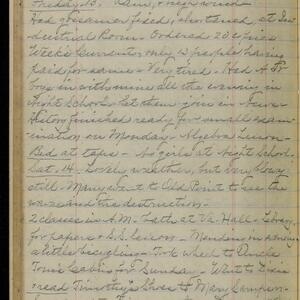 Friday 13. Rain, & high wind
Had gossamer fixed, shortened, at In-
dustrial Room. Ordered 20 copies
Week's Current, only 13 people having
paid for same - Very tired. Had A
boys in with mine all the evening in
Night School - let them join in News
History finished ready for small exam-
ination on Monday. Algebra lesson
Bed at taps - No girls at Night School.
Sat. 14. Lovely weather, but very blowy
still. Many went to Old Point to see the
waves and the destruction.
2 classes in A.M. Latin at Va. Hall - Library
for papers & S.S. lesson - Mending in
a little bicycling - Took wheel to Uncle
Tom's Cabin for Sunday - Went to Dixie
& read Timothy's Shoes to Mary